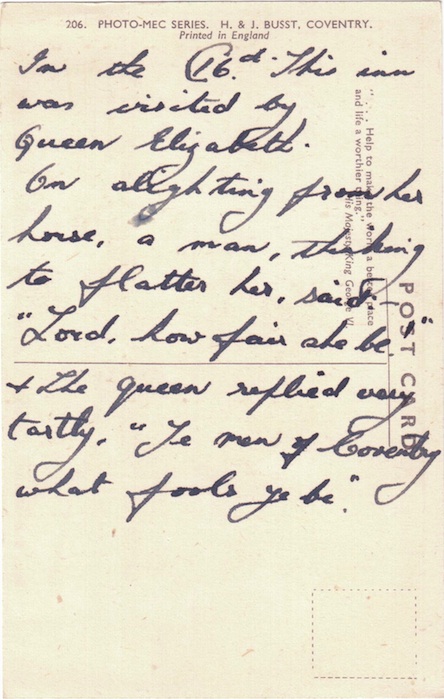 206. PHOTO-MEC SERIES. H. & J. BUSST, COVENTRY.
Printed in England
In the C16.d This inn
was visited by
Queen Elizabeth.
On alighting from her
horse, a man, thinking
to flatter her, said –
"Lord, how fair she be!"
+ the queen replied very
tartly, "Ye men of Coventry
what fools ye be".
". . . Help to make the world a better place
and life a worthier thing."
His Majesty King George VI
POST CARD